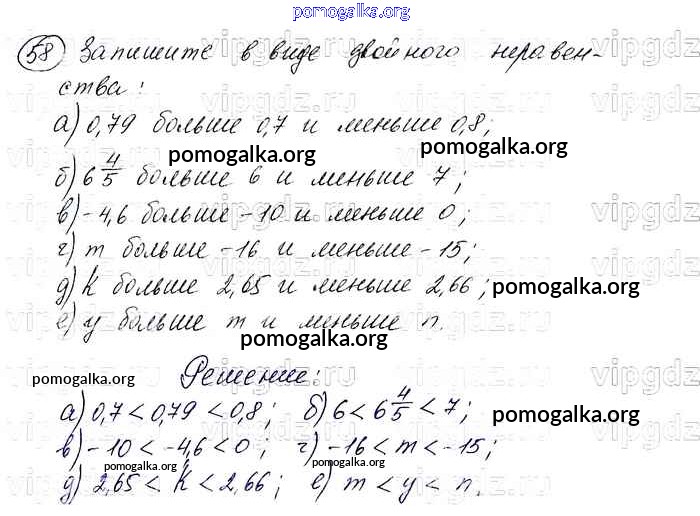 pomogalka.org
58 Запишите в виде двойного неравен-
ства:
а) 0,79 больше 0,7 и меньше 0,8;
pomogalka.org pomogalka.org
б) 6 4/5 больше 6 и меньше 7;
в) -4,6 больше -10 и меньше 0;
г) m больше -16 и меньше -15;
д) k больше 2,65 и меньше 2,66; pomogalka.org
е) y больше m и меньше n.
pomogalka.org
pomogalka.org Решение:
а) 0,7 < 0,79 < 0,8; б) 6 < 6 4/5 < 7; pomogalka.org
в) -10 < -4,6 < 0; г) -16 < m < -15;
pomogalka.org pomogalka.org
д) 2,65 < k < 2,66; е) m < y < n.
pomogalka.org
vipgdz.ru